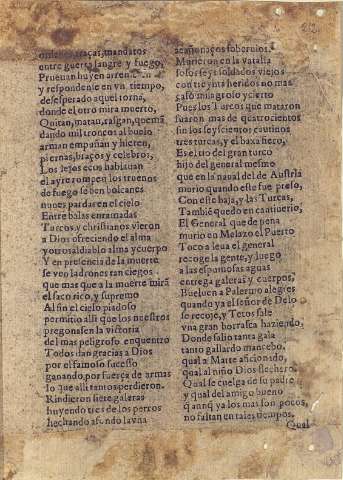 traças, mandatos
entre guerra sangre y fuego,
Prueuan huyen
y respondente en vn tiempo,
desesperado aquel torna,
donde el otro mira muerto,
Quitan, matan, rasgan, quemã
dando mil troncos al buelo
arman empuñan y hieren,
piernas, braços y celebros,
Los lexos ecos habituan
el ayre rompen los truenos
de fuego se ben bolcanes
nunes pardas en el cielo
Entre balas enramadas
Turcos y christianos vieron
a Dios ofreciendo el alma
y otros al diablo alma y cuerpo
Y en presencia de la muerte
se veo ladrones tan ciegos
que mas que a la muerte mirã
el saco rico, y supremo
Al fin el cielo piadoso
permitio alli que los nuestros
pregonasen la victoria
del mas peligroso enquentro
Todos dan gracias a Dios
por el famoso sucesso
ganando, por fuerça de armas
lo que alli tantos perdieron.
Rindieron siete galeras
huyendo tres de los perros
hechando a fondo la vna
acasionaços soberuios.
Murieron en la vatalla
sosos seys soldados viejos
con treynta heridos no mas
caso milagroso y cierto
Pues los Turcos que mataron
fuaron mas de quatrocientos
sin los seyscientos cautiuos
tres turcas, y el baxa fiero,
Es el tio del gran turco
hijo del general mesmo
que en la naual del de Austria
murio quando este fue preso,
Con este baja, y las Turcas,
Tambiẽ quedo en cautiuerio,
El General que de pena
murio en Melazo el Puerto
Toco a leua el general
recoge la gente, y luego
a las espumosas aguas
entrega galeras y cuerpos,
Bueluen a Palermo alegres
quando ya el señor de Delo
se recoje, y Tetos sale
vna gran borrasca haziendo,
Donde salio tanta gala
tanto gallardo mancebo,
qual a Marte aficionado,
qual al niño Dios flechero
Qual se cuelga de su padre
y qual del amigo bueno
q aunq̃ ya los mas son pocos,
no faltan en tales tiempos.
Qual